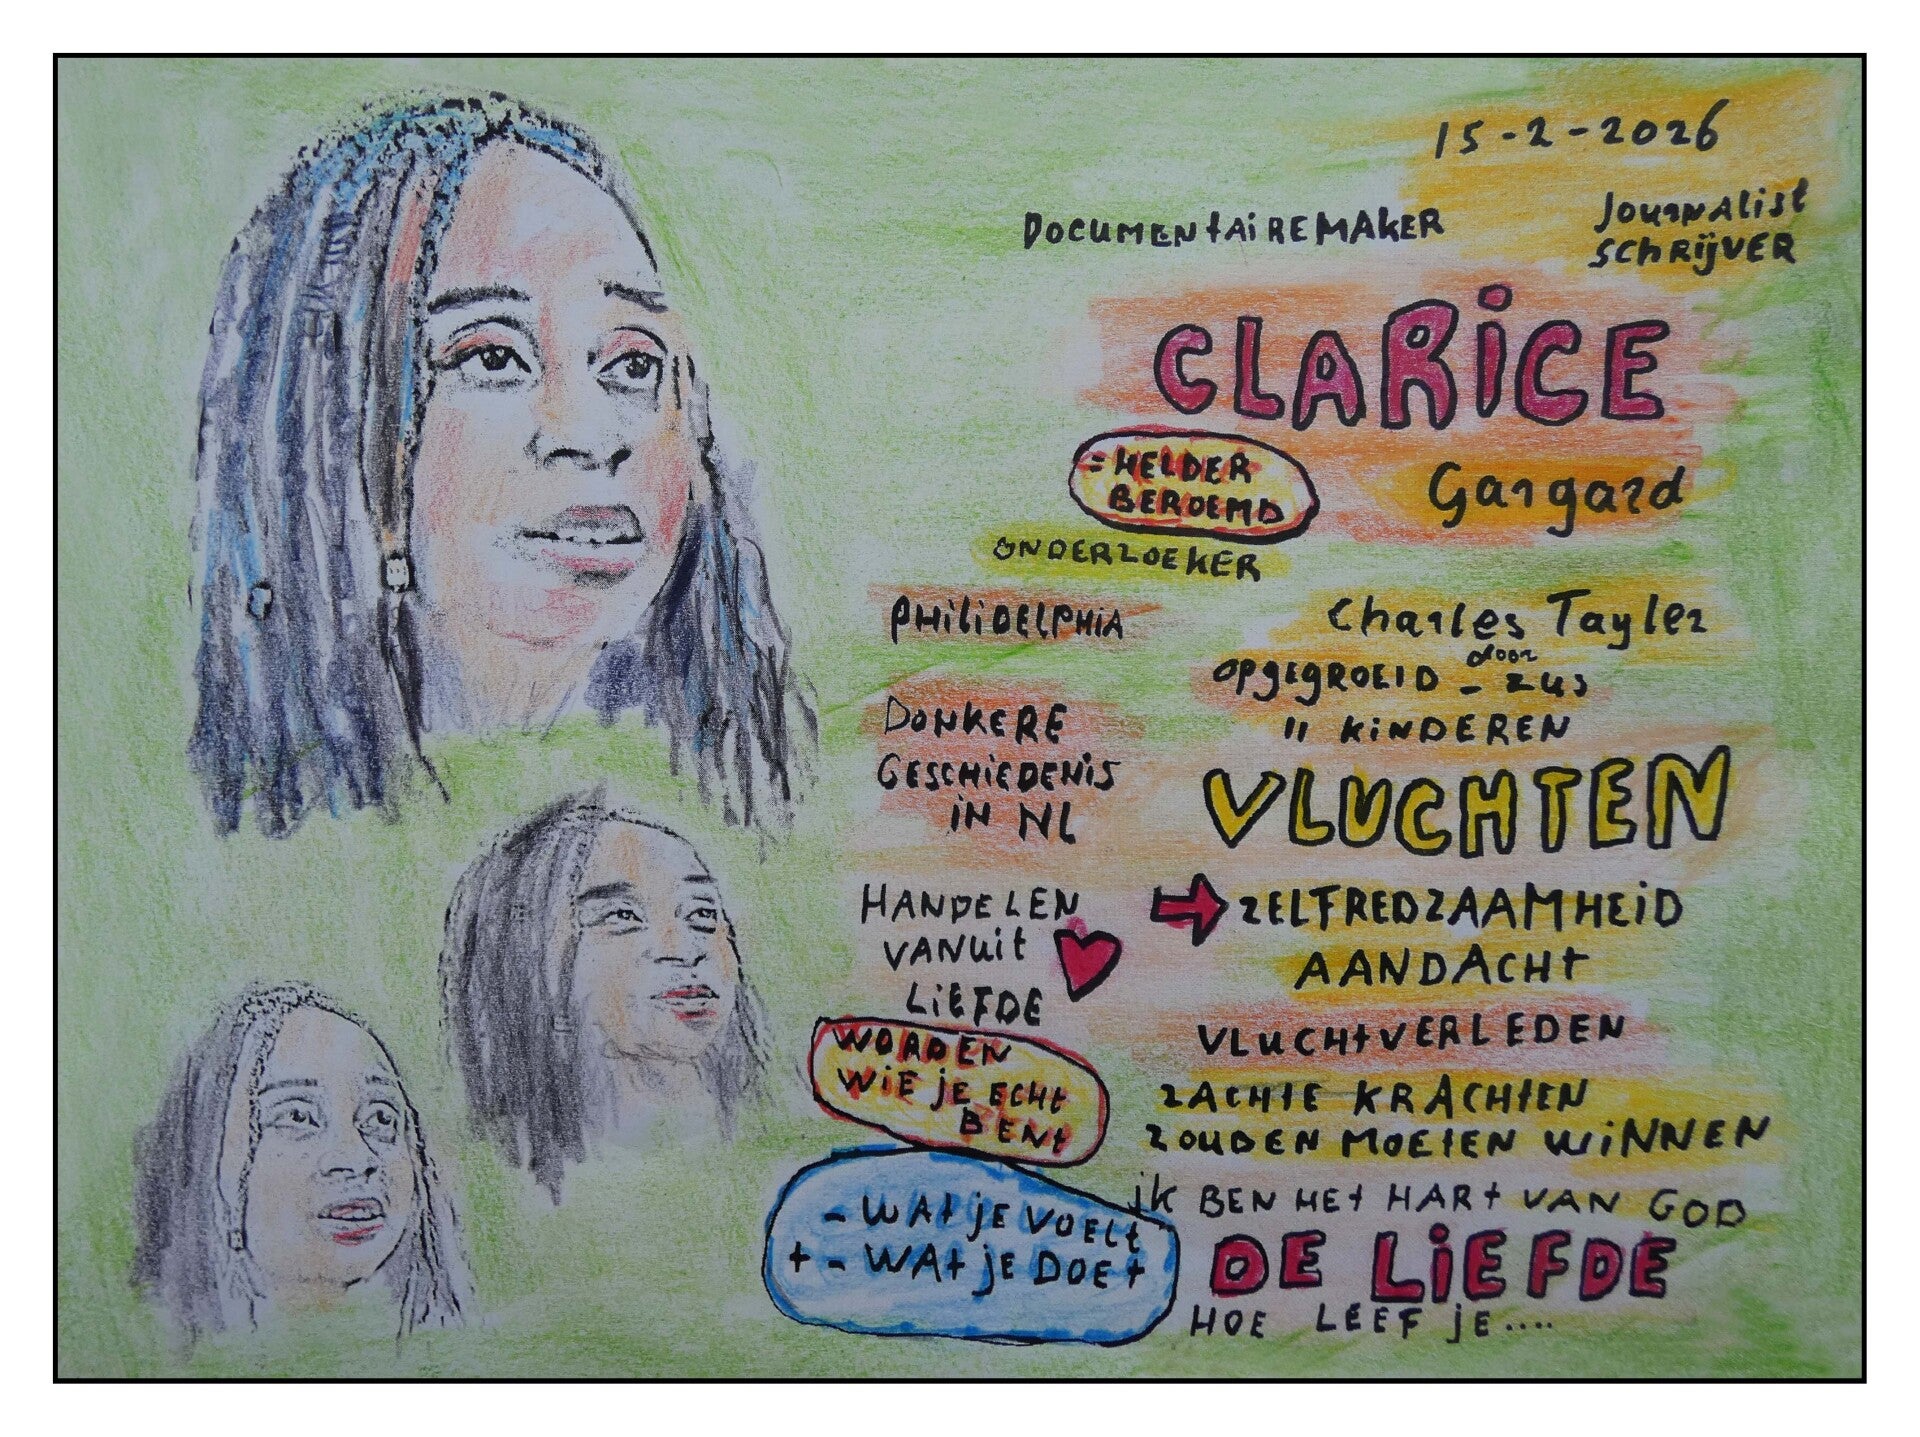 15-2-2026
DOCUMENTAIREMAKER
JOURNALIST
SCHRIJVER
CLARICE
= HELDER
BEROEMD
Gargard
ONDERZOEKER
PHILIDELPHIA
Charles Tayler
OPGEGROEID - door zus
11 KINDEREN
DONKERE
GESCHIEDENIS
IN NL
VLUCHTEN
HANDELEN
VANUIT
LIEFDE
ZELFREDZAAMHEID
AANDACHT
VLUCHTVERLEDEN
WORDEN
WIE JE ECHT
BENT
ZACHTE KRACHTEN
ZOUDEN MOETEN WINNEN
- WAT JE VOELT
+ - WAT JE DOET
IK BEN HET HART VAN GOD
DE LIEFDE
HOE LEEF JE....